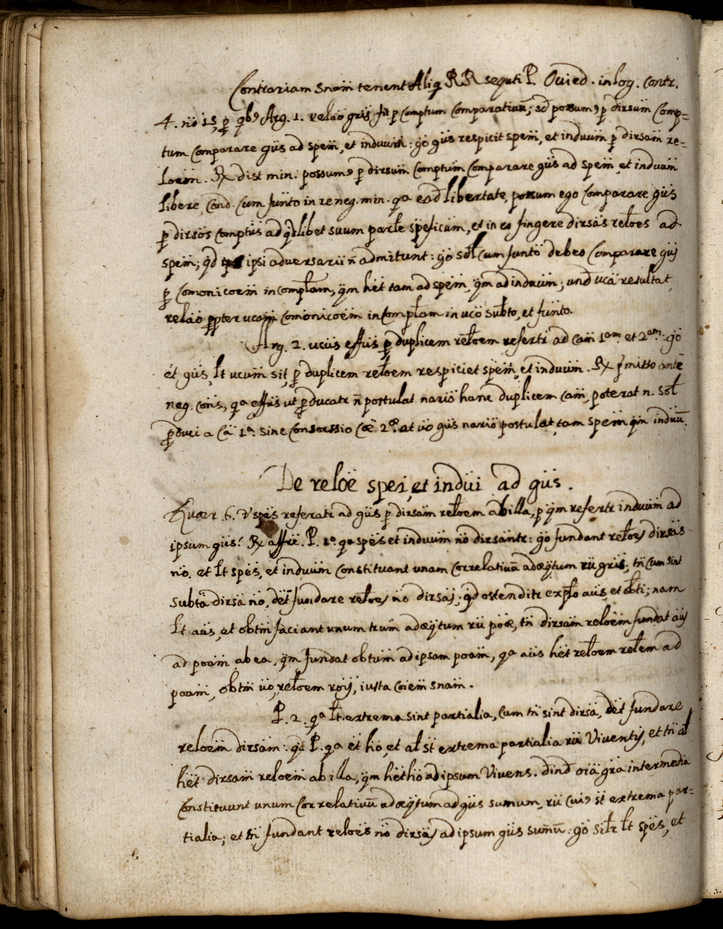 Contrariam Snam tenent Aliq RR sequti P. Ovied. in log. Contr.
4. no 15, p qbs Arg. 1. relao gris fit p comptum comparativu; sd possum p dirsum comp=
tum comparare gus ad spem, et induum: go gus respicit spem, et induum p dirsam re=
loem. Rx dist min. possum p dirsum comptum comparare gus ad spem, et induum
libere Cond. Cum funto in re neg. min. qa ead libertate, possum ego comparare gus
p dirsos comptus ad qdlibet suum parle speficum, et in eo fingere dirsas reloes ad
spem; qd ipsi adversarii n admitunt: go sol cum funto debeo Comparare gus
p comonicoem incomplam, qm het tam ad spem, qm ad induum; und uca resultat
relao ppter ucam comonicoem incomplam in uco subto, et funto.
Arg. 2. ucus effus p duplicem reloem referti ad cam 1am et 2am: go
et gus, lt ucum sit, p duplicem reloem respiciet spem, et induum. Rx pmitto ante
neg. cons, qa effus ut pducatr n postulat nario hanc duplicem cam, poterat n. sol
pduci a Ca 1a. sine consorsio Cae 2ae. at uo gus nario postulat tam spem qm induu
De reloe spei, et indui ad gus.
Quaer 6. V spes referatr ad gus p dirsam reloem ab illa, p qm refertr induum ad
ipsum gus? Rx affie. P. 1o. qa spes et induum no dirsantr: go fundant reloes dirsas
no. et lt spes, et induum constituant unam correlativu adaeqtum rii gris; tn cum sint
subta dirsa no, det fundare reloes no dirsas; qd ostenditr explo auis et obti; nam
lt aus, et obtm faciant unum trum adaeqtum rii poae, tn dirsam reloem fundat aus
ad poam ab ea, qm fundat obtum ad ipsam poam, qa aus het reloem relem ad
poam, obtm uo, reloem rois, iusta coiem snam.
P. 2. qa lt extrema sint partialia, Cum tn sint dirsa, det fundare
reloem dirsam: go P. qa et ho, et al st extrema partialia rii Viventis, et tn al
het dirsam reloem ab illa, qm het ho ad ipsum Vivens. dind oia gra intermedia
Constituunt unum Correlativu adaeqtum ad gus sumum, rii cuis st extrema par=
tialia; et tn fundant reloes no dirsas ad ipsum gus sumu: go silr lt spes, et